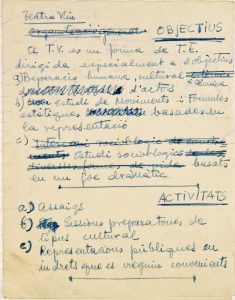 Teatro Viu
OBJECTIUS
El T.V. es un forma de T.E.
dirigida especialment a 3 objectius
a) Reparacio humana, cultural
d'actors
b) estudi de Moviments i Formules
estetiques basades en
la representació
c)
Estudi sociologic
basats
en un joc dramàtic
ACTIVITATS
a) Assaigs
b) Sessions preparatories de
tipus cultural
c) Representacions públiques en
indrets que es vegin convenients